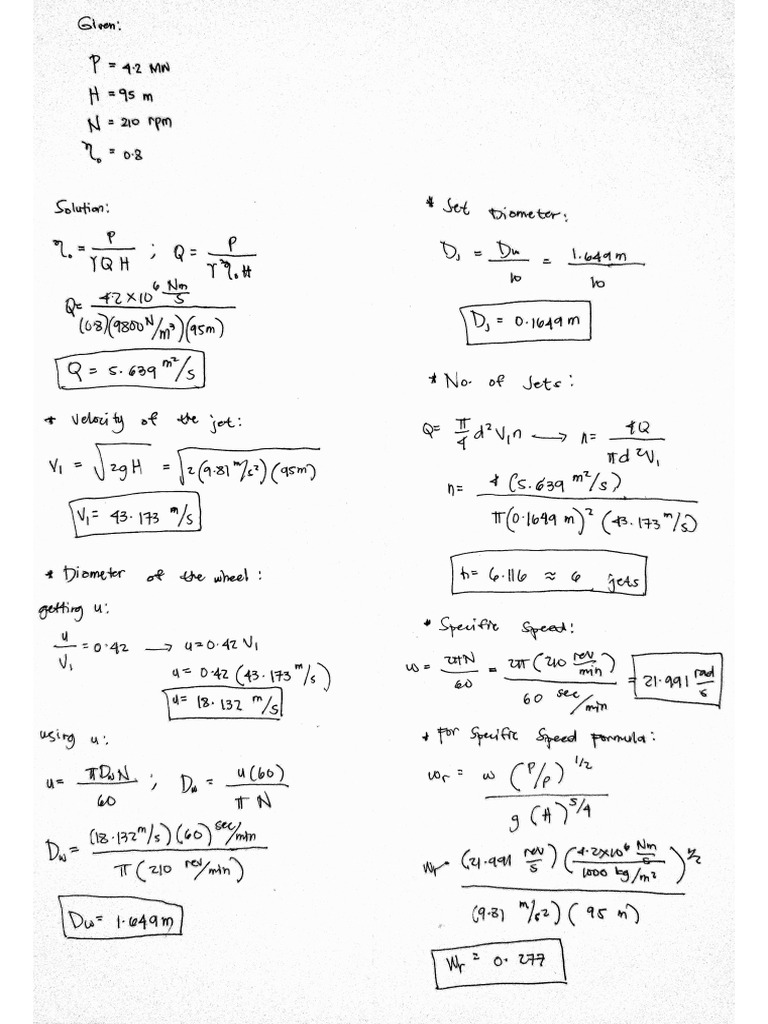 Given:
P = 4.2 MN
H = 95 m
N = 210 rpm
η₀ = 0.8
Solution:
η₀ = P / γQH ; Q = P / γη₀H
Q = 4.2 × 10⁶ Nm/s / (0.8)(9800 N/m³)(95m)
Q = 5.639 m²/s
* Velocity of the jet:
V₁ = √2gH = √2(9.81 m/s²)(95m)
V₁ = 43.173 m/s
* Diameter of the wheel:
getting u:
u/V₁ = 0.42 → u = 0.42 V₁
u = 0.42 (43.173 m/s)
u = 18.132 m/s
using u:
u = πDwN / 60 ; Dw = u(60) / πN
Dw = (18.132 m/s)(60) sec/min / π(210 rev/min)
Dw = 1.649 m
* Jet Diameter:
DJ = Dw / 10 = 1.649 m / 10
DJ = 0.1649 m
* No. of Jets:
Q = π/4 d² V₁n → n = 4Q / πd²V₁
n = 4 (5.639 m²/s) / π(0.1649 m)² (43.173 m/s)
n = 6.116 ≈ 6 jets
* Specific Speed:
ω = 2πN / 60 = 2π (210 rev/min) / 60 sec/min = 21.991 rad/s
* For Specific Speed Formula:
ωr = ω (P/ρ)^1/2 / g (H)^5/4
Wr = (21.991 rev/s) (4.2×10⁶ Nm/s / 1000 kg/m²)^1/2 / (9.81 m/s²) (95 m)
Wr = 0.277